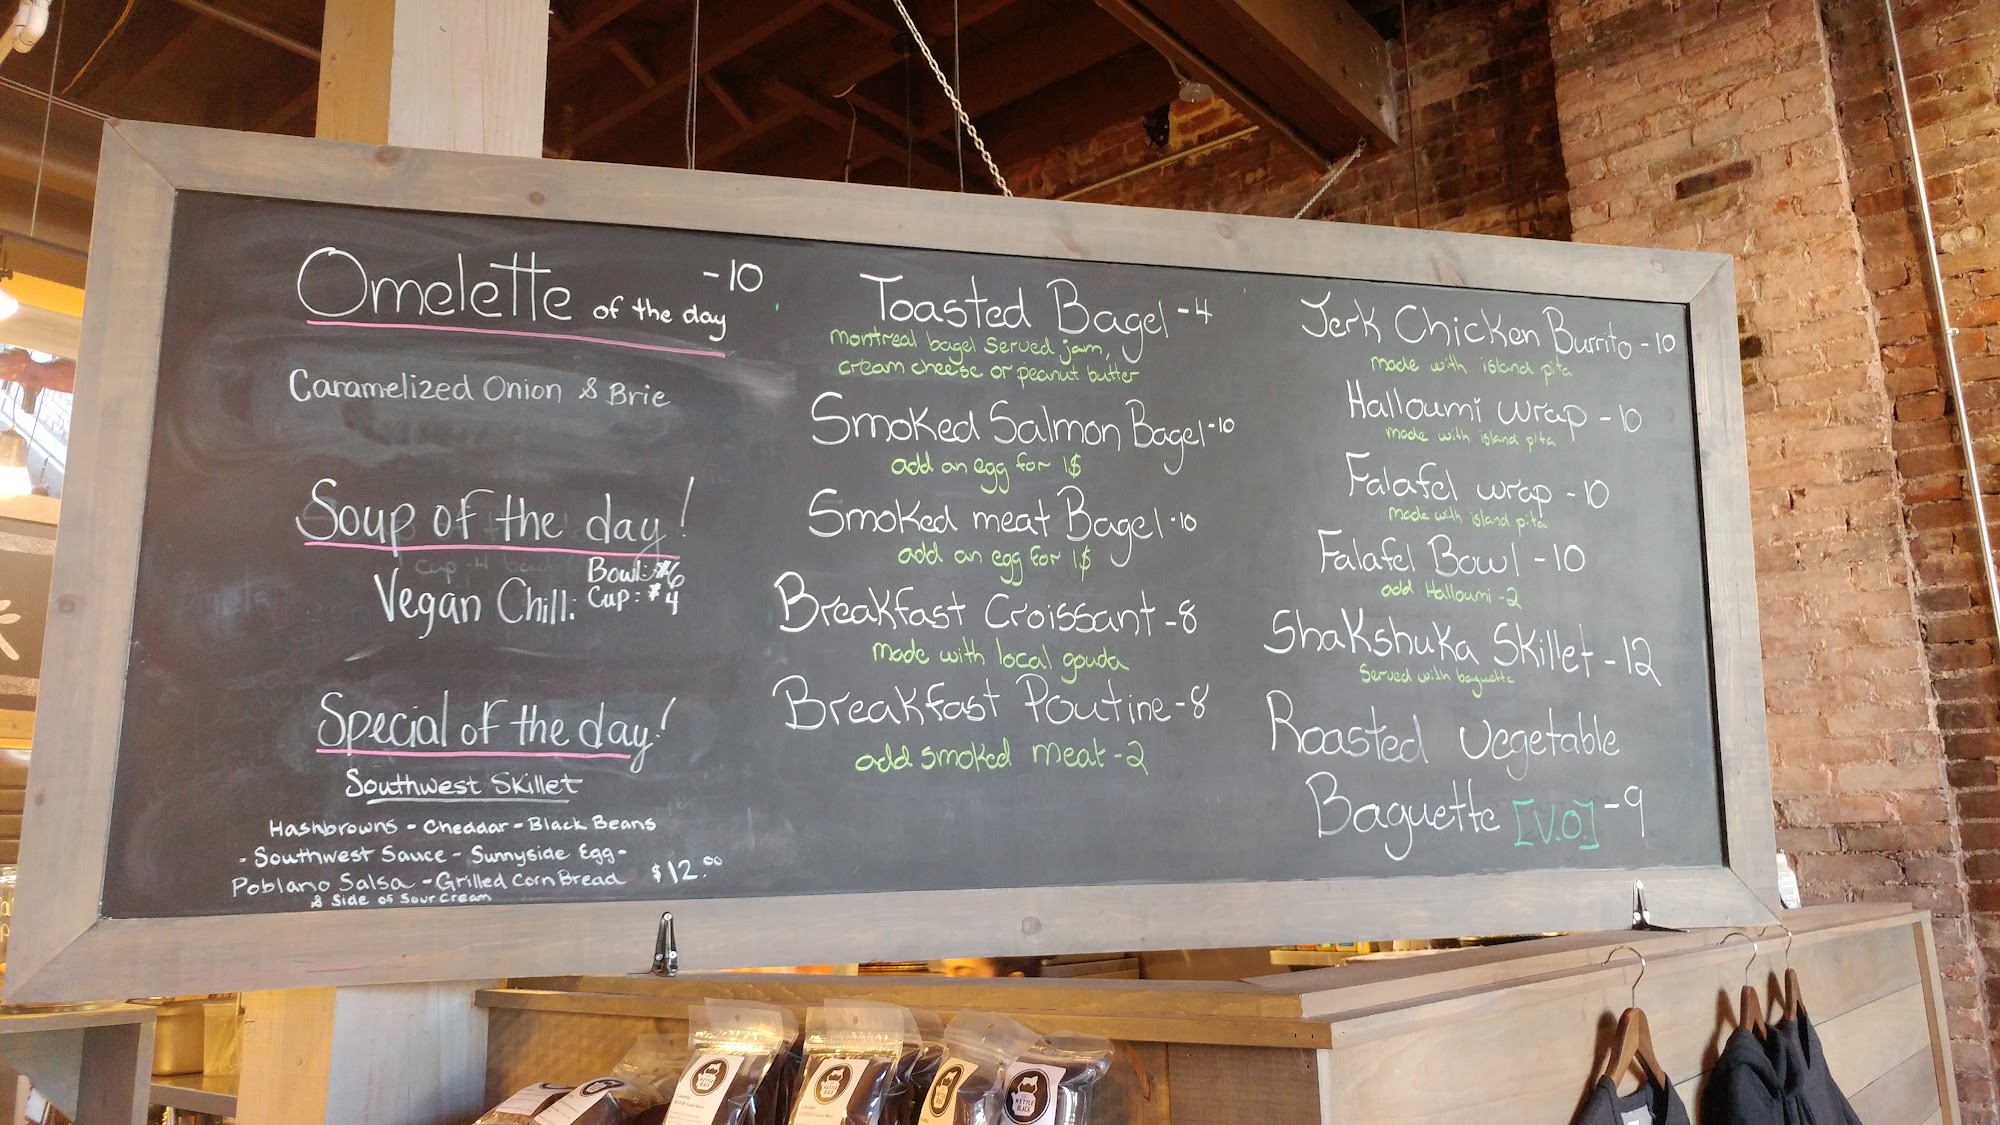 Omelette of the day -10
Caramelized Onion & Brie
Soup of the day!
Vegan Chili:
Bowl: $6
Cup: $4
Special of the day!
Southwest Skillet
Hashbrowns - Cheddar - Black Beans
- Southwest Sauce - Sunnyside Egg -
Poblano Salsa - Grilled Corn Bread
& Side of Sour Cream
$12.00
Toasted Bagel - 4
montreal bagel served jam,
cream cheese or peanut butter
Smoked Salmon Bagel - 10
add an egg for 1$
Smoked meat Bagel - 10
add an egg for 1$
Breakfast Croissant - 8
made with local gouda
Breakfast Poutine - 8
add smoked meat - 2
Jerk Chicken Burrito - 10
made with island pita
Halloumi wrap - 10
made with island pita
Falafel wrap - 10
made with island pita
Falafel Bowl - 10
add Halloumi - 2
Shakshuka Skillet - 12
Served with baguette
Roasted vegetable
Baguette [V.O] - 9
KETTLE
BLACK